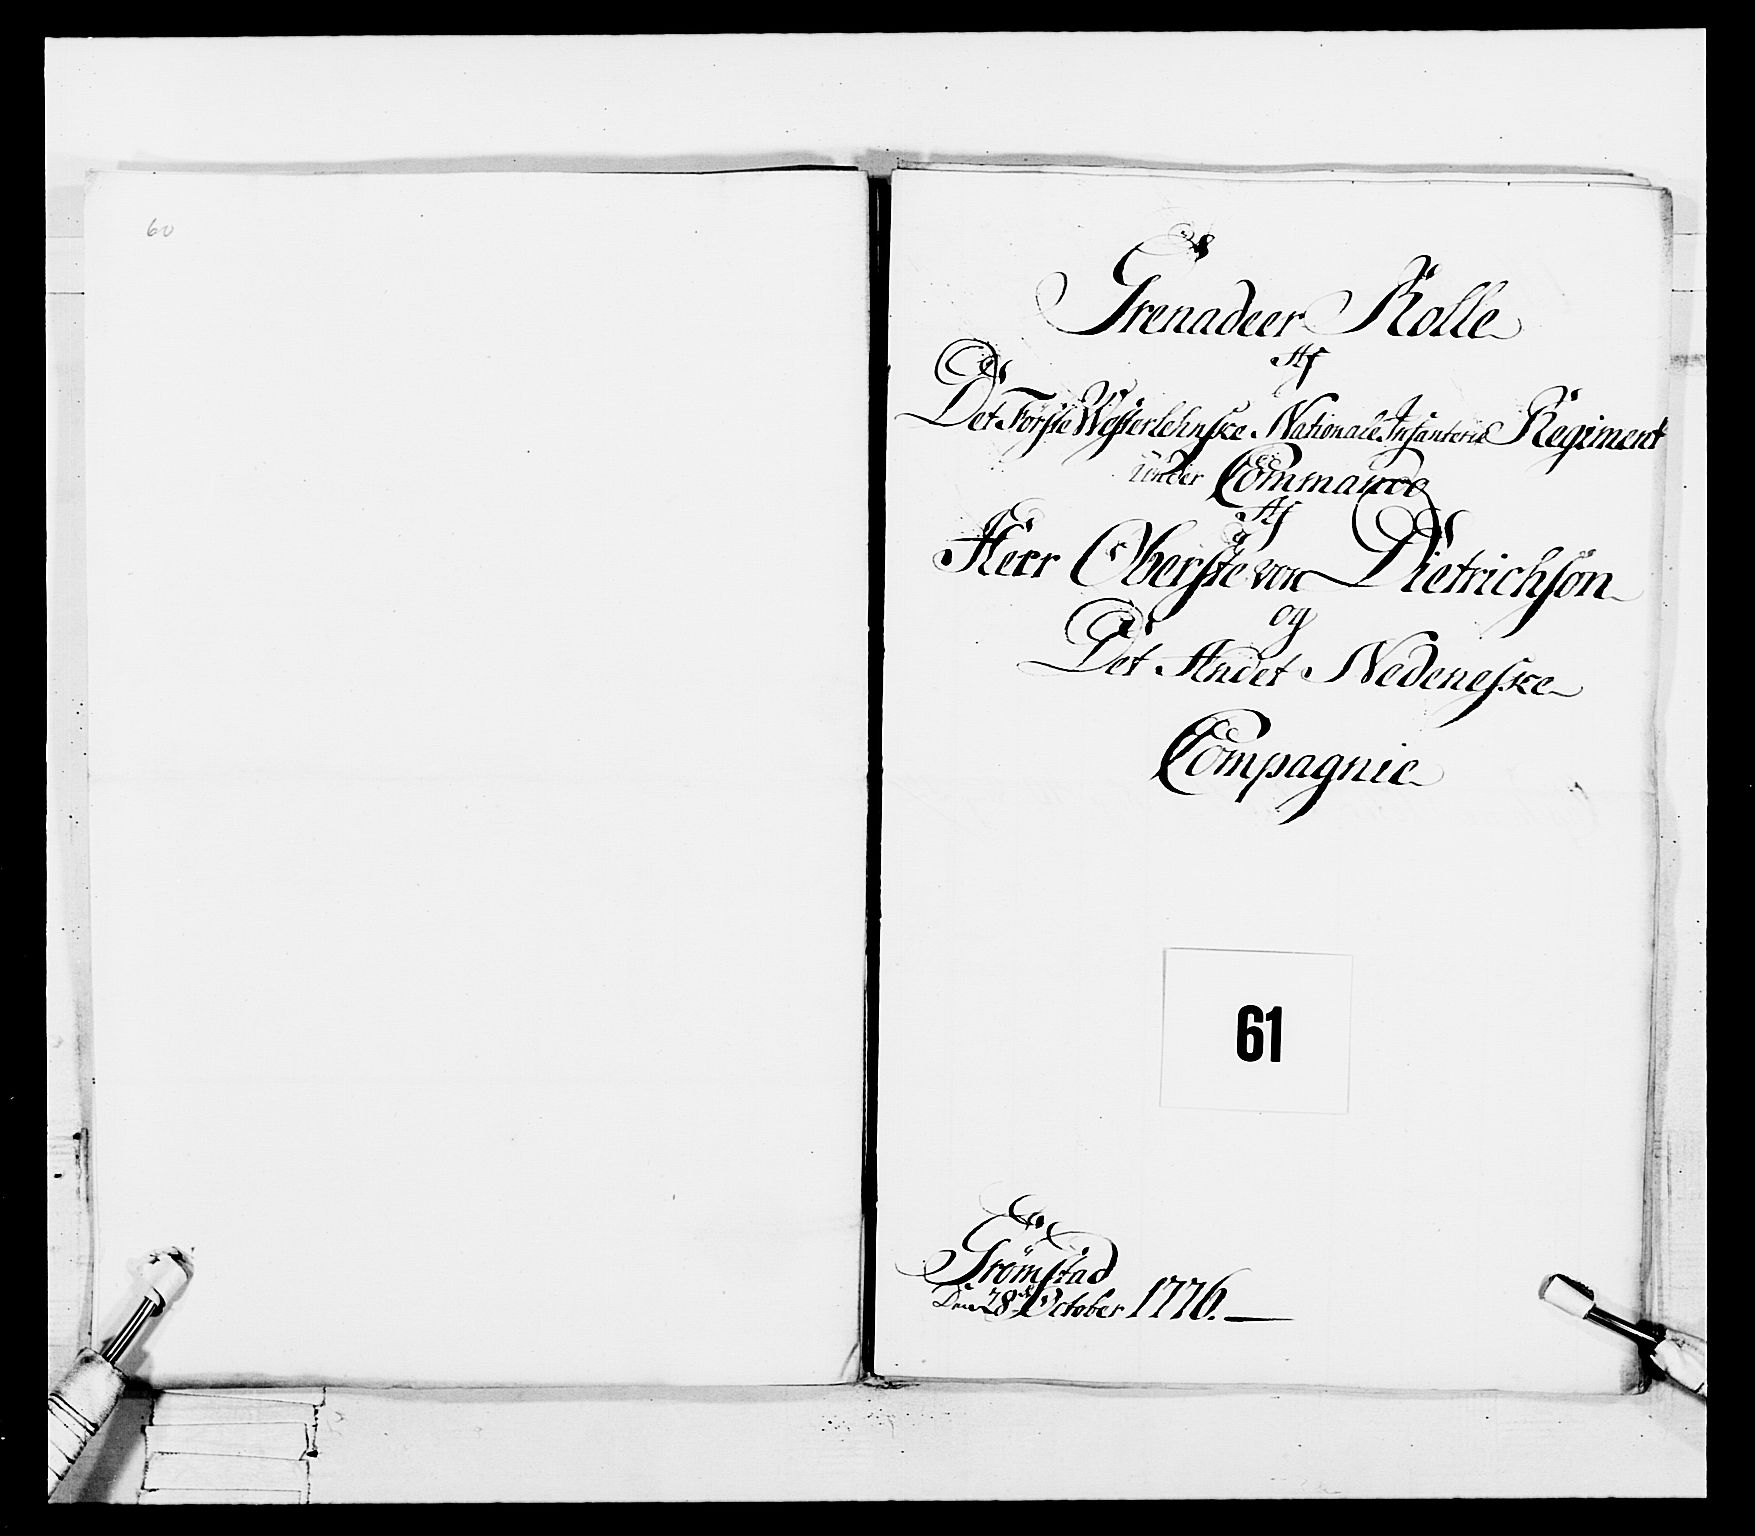 60
Grenadeer Rolle
Af
Det Förste Westerlehnske Nationale Infanterie Regiment
under Commando
Af
Herr Oberste von Dietrichson
og
Det Andet Nedeneske
Compagnie
61
Grömstad
Den 28de October 1776.